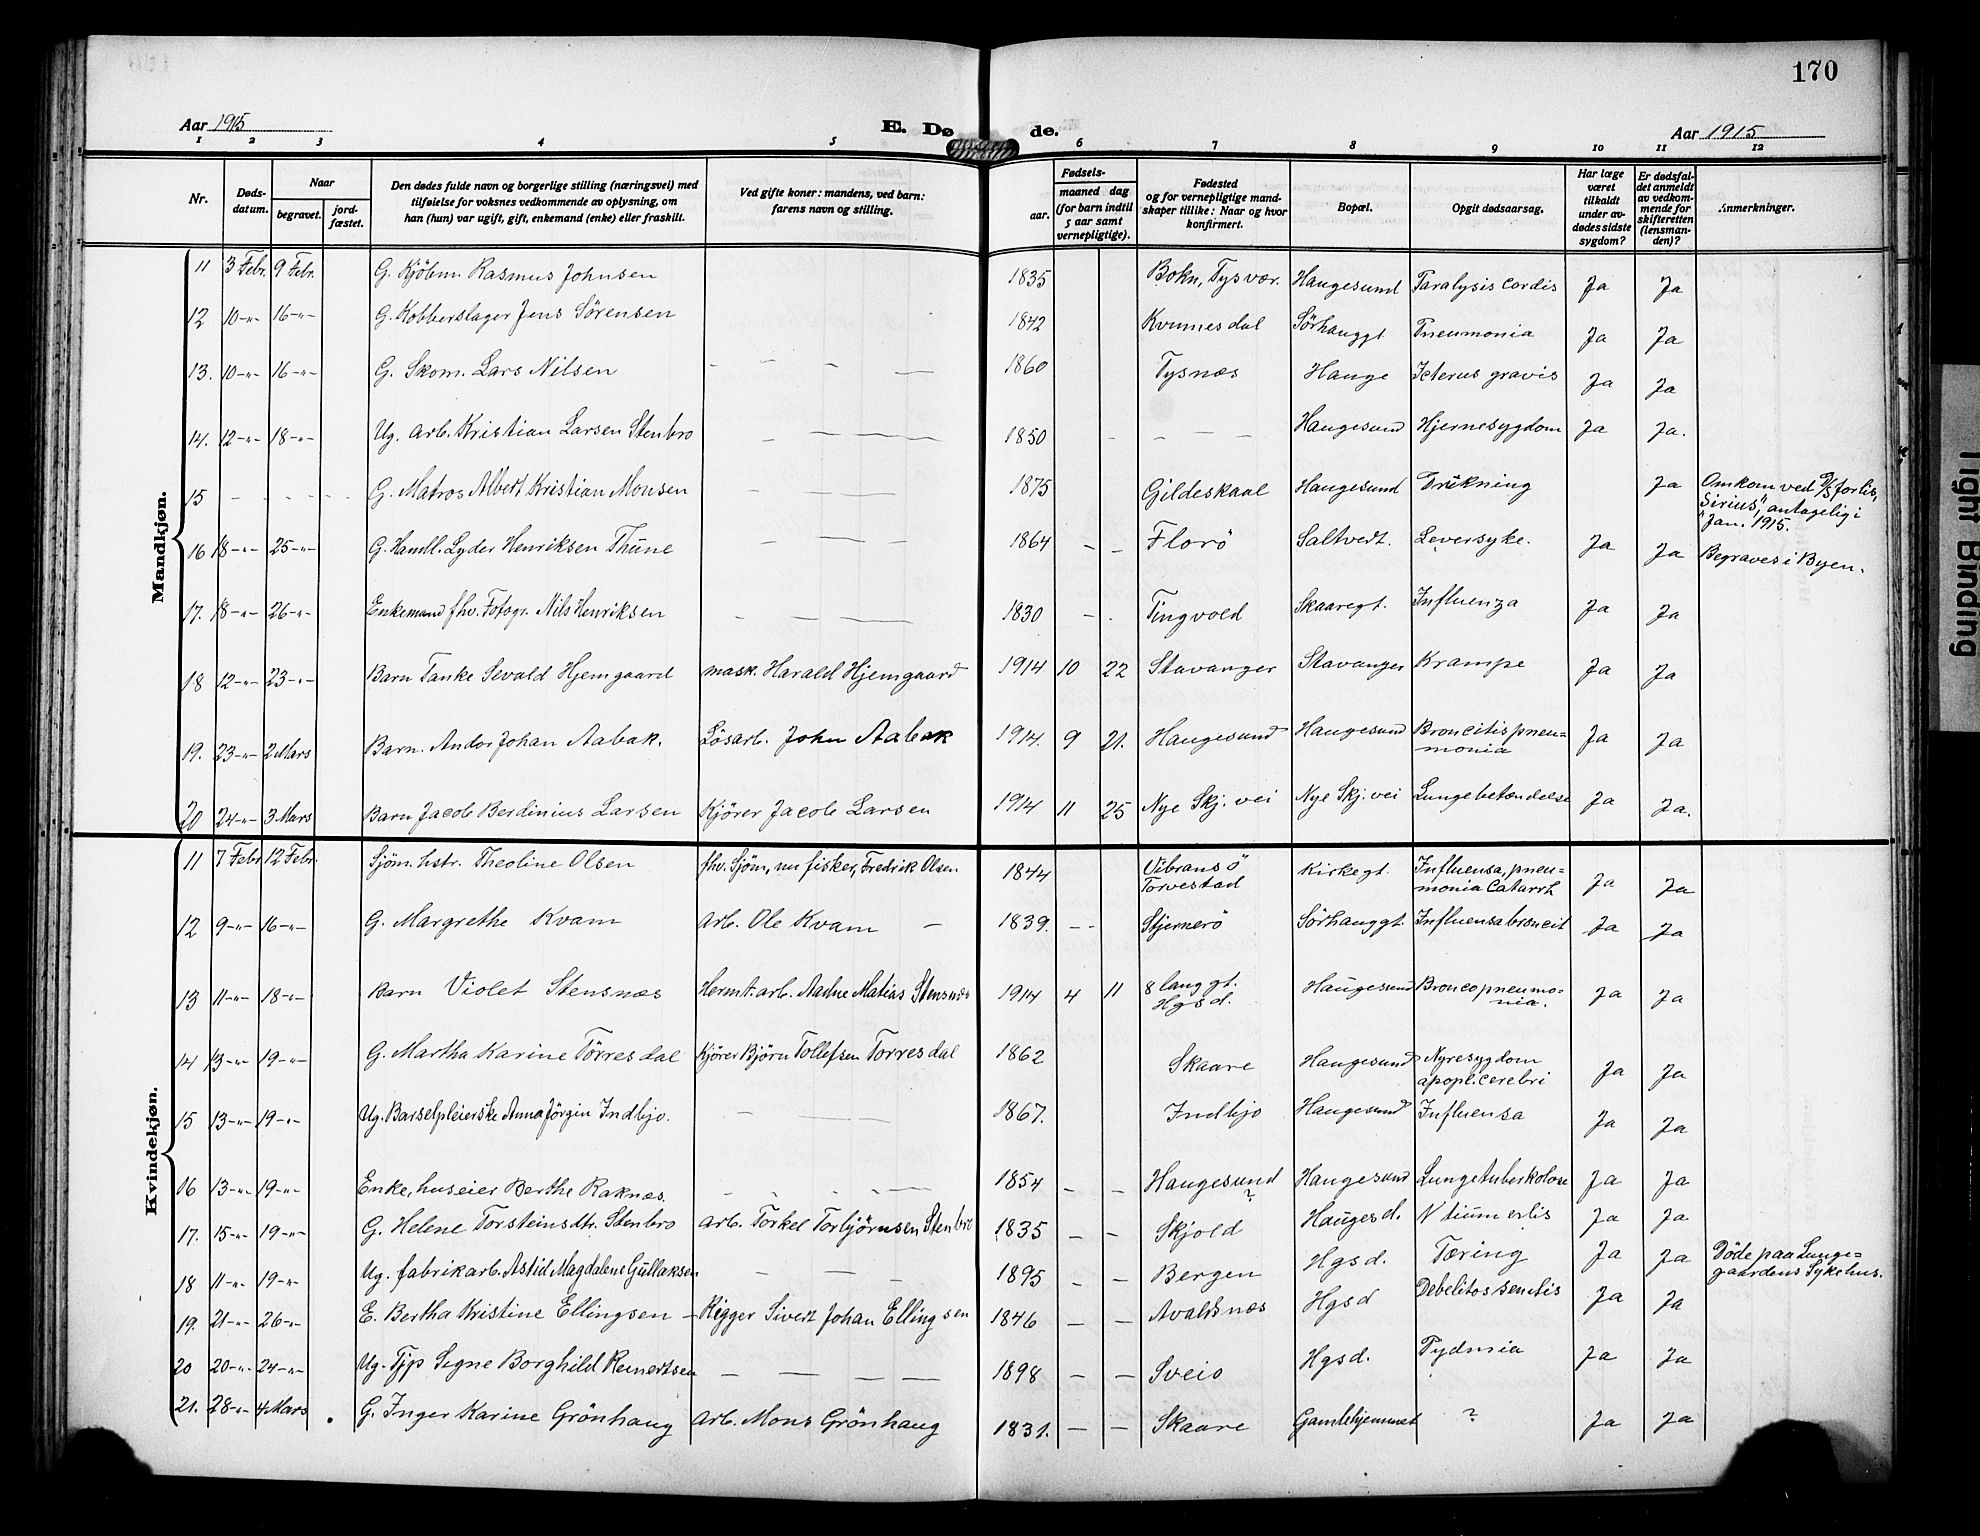 170
Aar 1915 E. Dø de. Aar 1915
1 2 3 4 5 6 7 8 9 10 11 12
Nr. Døds-datum. Naar begravet. jord-fæstet. Den dødes fulde navn og borgerlige stilling (næringsvei) med tilføielse for voksnes vedkommende av oplysning, om han (hun) var ugift, gift, enkemand (enke) eller fraskilt. Ved gifte koner: mandens, ved barn: farens navn og stilling. Fødsels- aar. maaned dag (for barn indtil 5 aar samt vernepligtige). Fødested og for vernepligtige mandskaper tillike: Naar og hvor konfirmert. Bopæl. Opgit dødsaarsag. Har læge været tilkaldt under avdødes sidste sygdom? Er dødsfaldet anmeldt av vedkommende for skifteretten (lensmanden)? Anmerkninger.
Mandkjøn.
11 3 Febr. 9 Febr. G. Kjöbm. Rasmus Johnsen 1835 Bokn, Tysvær. Haugesund Paralysis cordis Ja Ja
12 10 -"- 16 -"- G. Kobberslager Jens Sørensen 1842 Kvinnesdal Sörhauggt. Pneumonia Ja Ja
13. 10 -"- 16 -"- G. Skom. Lars Nilsen - - - - 1860 Tysnæs Hauge Icterus gravis Ja Ja
14. 12 -"- 18 -"- Ug. arb. Kristian Larsen Stenbro - - - - 1850 - - - - Haugesund Hjernesygdom Ja Ja.
15 - - - - - G. Matros Albert Kristian Monsen - - - 1875 Gildeskaal Haugesund Drukning Ja Omkom ved D/S forlis,
"Sirius", antagelig i
Jan. 1915.
16 18 -"- 25 -"- G. Handl. Lyder Henriksen Thune - - - 1864 - - Florö Saltvedt. Leversyke. Ja Ja Begraves i Byen.
17. 18 -"- 26 -"- Enkemand fhv. Fotogr. Nils Henriksen - - - 1830 - - Tingvold Skaaregt. Influenza Ja Ja
18 12 -"- 23 -"- Barn Tanke Sevald Hjemgaard mask. Harald Hjemgaard 1914 10 22 Stavanger Stavanger Krampe Ja Ja
19. 23 -"- 2 Mars Barn. Andor Johan Aabak. Lösarb. John Aabak 1914. 9 21. Haugesund Haugesund Broncitis pneu=
monia Ja Ja
20 24 -"- 3 Mars Barn Jacob Berdinius Larsen Kjörer Jacob Larsen 1914 11 25 Nye Skj. vei Nye Skj. vei Lungebetændelse Ja Ja.
Kvindekjøn.
11 7 Febr 12 Febr. Sjöm. hstr. Theoline Olsen fhv. Sjöm, nu fisker, Fredrik Olsen 1844 Vibransö
Torvestad Kirkegt. Influensa, pneu=
monia Catarrh Ja Ja
12 9 -"- 16 -"- G. Margrethe Kvam Arb. Ole Kvam - 1839. - - Stjernerö Sörhauggt. Influensa broncit Ja Ja
13 11 -"- 18 -"- Barn Violet Stensnæs Hermt. arb. Aadne Matias Stensnæs 1914 4 11 8 langgt.
Hgsd. Haugesund Broncopneumo=
nia. Ja Ja
14 13 -"- 19 -"- G. Martha Karine Törresdal Kjörer Björn Tollefsen Torresdal 1862 Skaare Haugesund Nyresygdom
apopl. cerebri Ja Ja
15 13 -"- 19 -"- Ug. Barselpleierske Anna Jörgin Indbjo. - - 1867. Indbjo Haugesund Influensa Ja Ja
16 13 -"- 19 -"- Enke, huseier Berthe Raknæs. - - - - 1854 - - Haugesund
? Haugesund Lungetuberkolose Ja Ja
17. 15 -"- 19 -"- G. Helene Torsteinsdtr. Stenbro Arb. Torkel Torbjörnsen Stenbro 1835 - - Skjold Haugesd. Ja Ja
18 11 -"- 19 -"- Ug. fabrikarb. Astid Magdalene Gullaksen - - - 1895 - - Bergen Hgsd. Tæring Ja Ja Döde paa Lunge=
gaardens Sykehus.
19. 21 -"- 26 -"- E. Bertha Kristine Ellingsen - Rigger Sivert Johan Ellingsen 1846 - - Avaldsnæs Hgsd Debelitos senilis Ja Ja
20 20 -"- 24 -"- Ug. Tjp Signe Borghild Reinertsen - - - - 1898 - - Sveio Hgsd. Pydmia Ja Ja
21. 28 -"- 4 Mars G. Inger Karine Grönhaug Arb. Mons Grönhaug 1831. - - Skaare Gamlehjemmet ? Ja Ja
Tight Binding